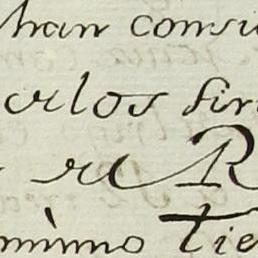 han consi
arlos fir
re R
mìnmo tie